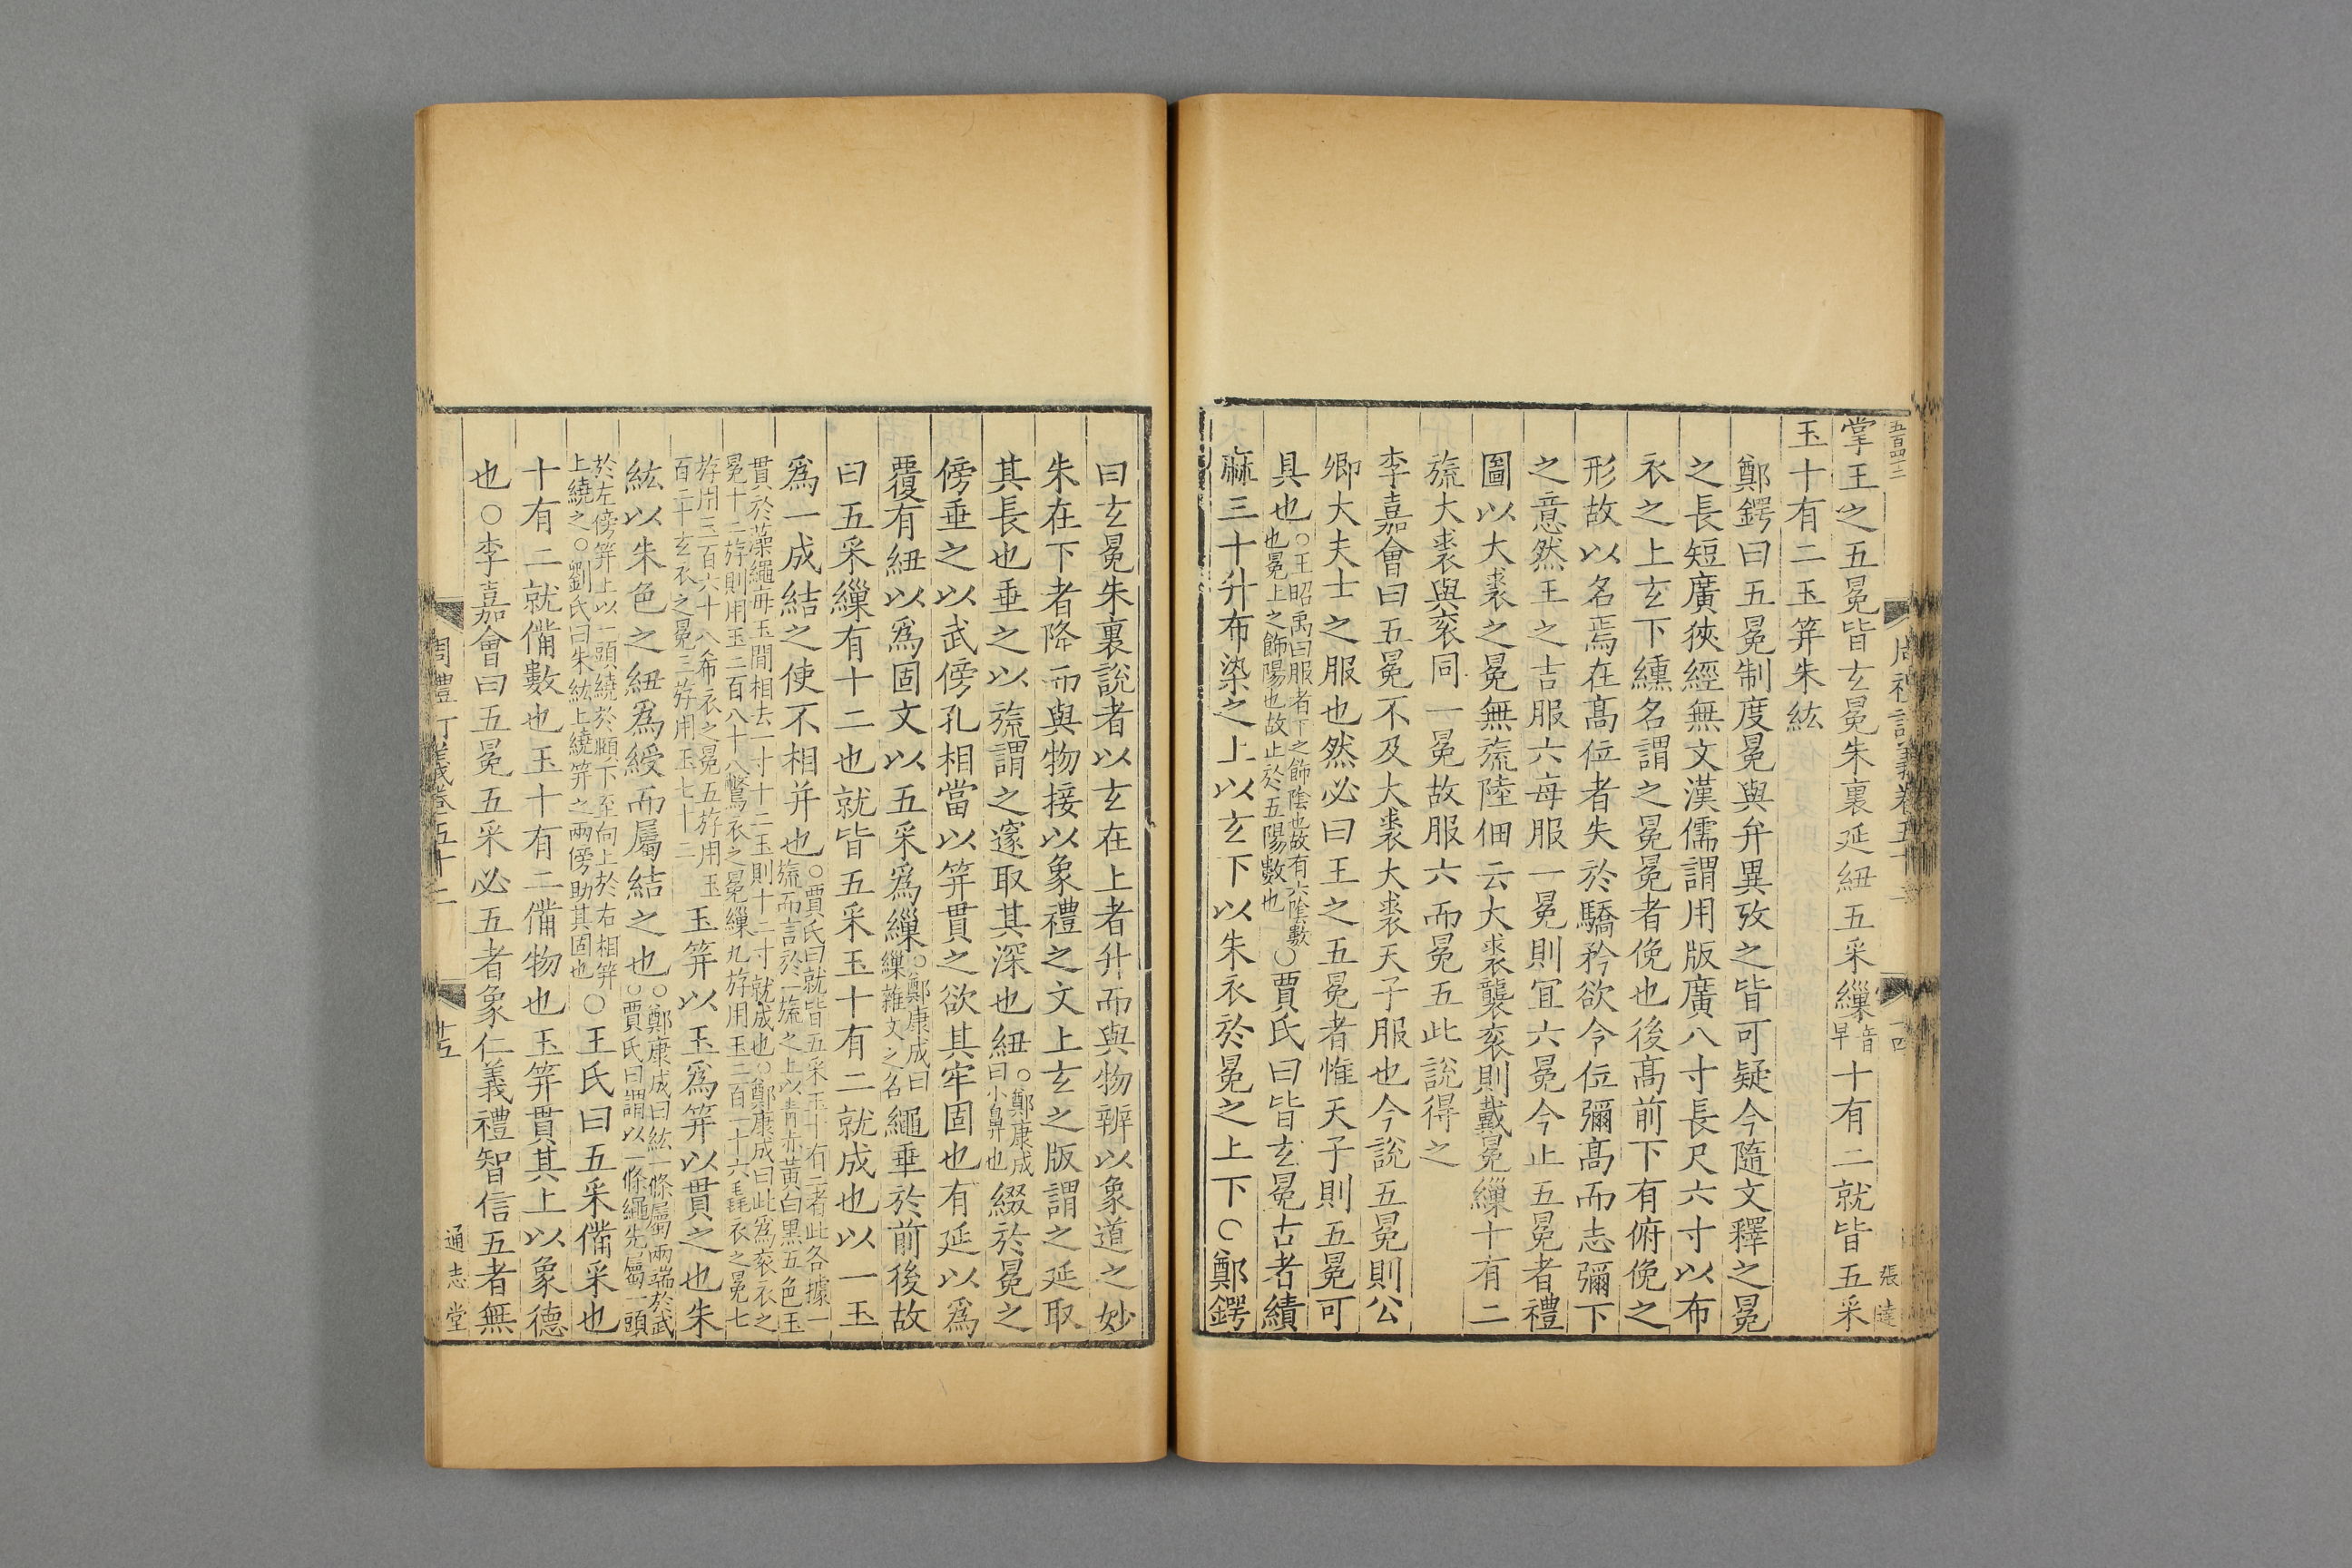 五百四十二
周禮訂義卷五十二
十四
張達
掌王之五冕皆玄冕朱裏延紐五采繅音早十有二就皆五采
玉十有二玉筓朱紘
鄭鍔曰五冕制度冕與弁異攷之皆可疑今隨文釋之冕
之長短廣狹經無文漢儒謂用版廣八寸長尺六寸以布
衣之上玄下纁名謂之冕冕者俛也後髙前下有俯俛之
形故以名焉在髙位者失於驕矜欲令位彌髙而志彌下
之意然王之吉服六每服一冕則冝六冕今止五冕者禮
圖以大裘之冕無旒陸佃云大裘襲衮則戴冕繅十有二
旒大裘與衮同一冕故服六而冕五此說得之
李嘉會曰五冕不及大裘大裘天子服也今說五冕則公
卿大夫士之服也然必曰王之五冕者惟天子則五冕可
具也○王昭禹曰服者下之飾陰也故有六陰數
也冕上之飾陽也故止於五陽數也○賈氏曰皆玄冕古者績
麻三十升布染之上以玄下以朱衣於冕之上下○鄭鍔
曰玄冕朱裏說者以玄在上者升而與物辨以象道之妙
朱在下者降而與物接以象禮之文上玄之版謂之延取
其長也垂之以旒謂之邃取其深也紐○鄭康成
曰小鼻也綴於冕之
傍垂之以武傍孔相當以筓貫之欲其牢固也有延以爲
覆有紐以爲固文以五采爲繅○鄭康成曰
繅雜文之名繩垂於前後故
曰五采繅有十二也就皆五采玉十有二就成也以一玉
爲一成結之使不相并也○賈氏曰就皆五采玉十有二者此各據一
旒而言於一旒之上以青赤黃白黑五色玉
貫於藻繩毎玉間相去一寸十二玉則十二寸就成也○鄭康成曰此爲衮衣之
冕十二斿則用玉二百八十八鷩衣之冕繅九斿用玉二百一十六毳衣之冕七
斿用三百六十八希衣之冕五斿用玉
百二十玄衣之冕三斿用玉七十二玉筓以玉爲筓以貫之也朱
紘以朱色之紐爲綬而屬結之也○鄭康成曰紘一條屬兩端於武
○賈氏曰謂以一條繩先屬一頭
於左傍筓上以一頭繞於頤下至向上於右相筓
上繞之○劉氏曰朱紘上繞筓之兩傍助其固也○王氏曰五采備采也
十有二就備數也玉十有二備物也玉筓貫其上以象德
也○李嘉會曰五冕五采必五者象仁義禮智信五者無
周禮訂義卷五十二
十五
通志堂